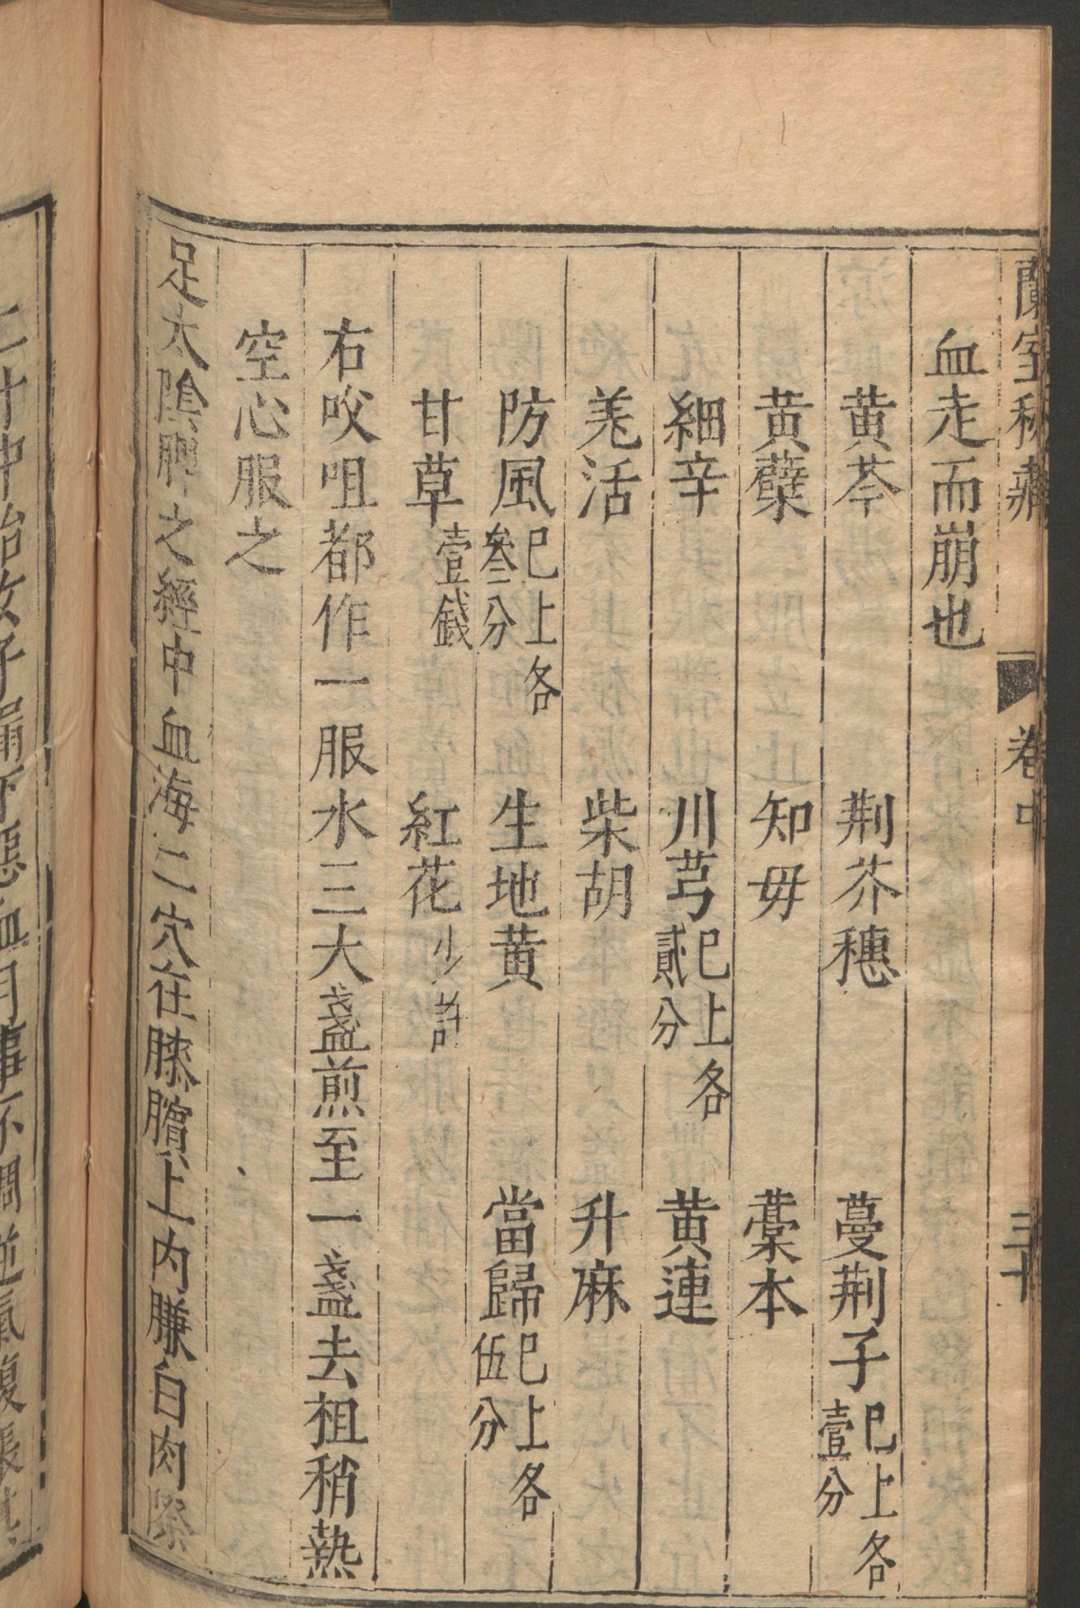 蘭室秘藏 卷中 三十
血走而崩也
黄芩 荆芥穗 蔓荆子 已上各壹分
黄蘗 知毋 藁本
細辛 川芎 已上各貳分 黄連
羌活 柴胡 升麻
防風 已上各叁分 生地黄 當歸 已上各伍分
甘草 壹錢 紅花 少許
右㕮咀都作一服水三大盞煎至一盞去柤稍熱
空心服之
足太陰脾之經中血海二穴在膝臏上内臁白肉際
二寸中治女子漏下惡血月事不調逆氣腹脹